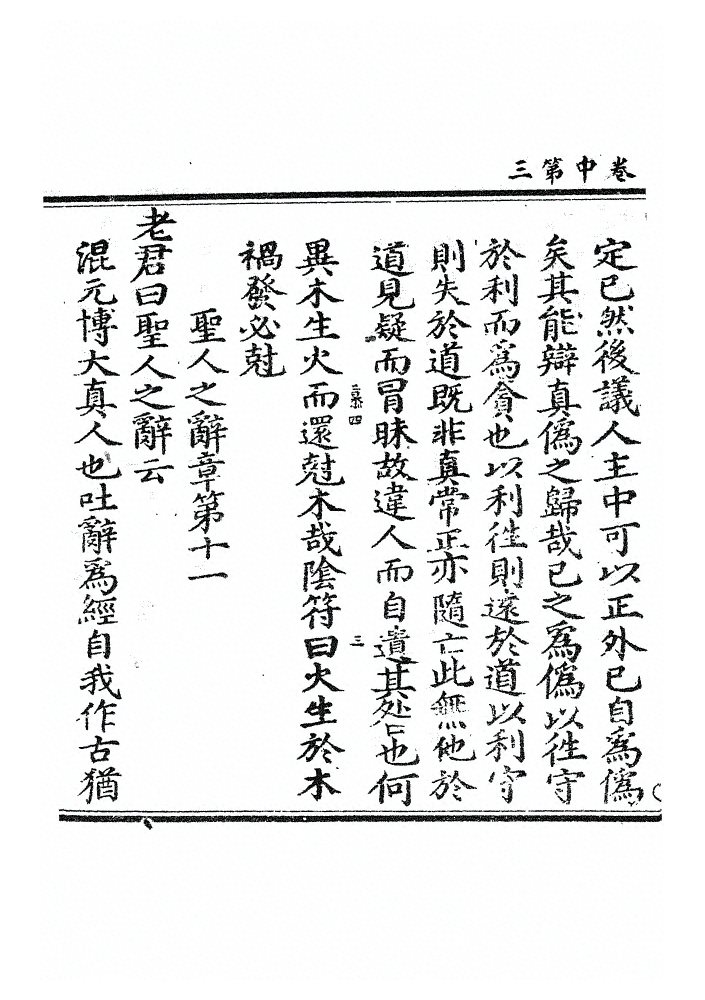 卷中第三
定已然後議人主中可以正外已自爲僞
矣其能辯真僞之歸哉已之爲僞以徃守
於利而爲貪也以利徃則遠於道以利守
則失於道旣非真常正亦隨亡此無他於
道見疑而冒昧故違人而自遺其咎也何
異木生火而還尅木哉陰符曰火生於木
禍發必尅
聖人之辭章第十一
老君曰聖人之辭云
混元博大真人也吐辭爲經自我作古猶
三